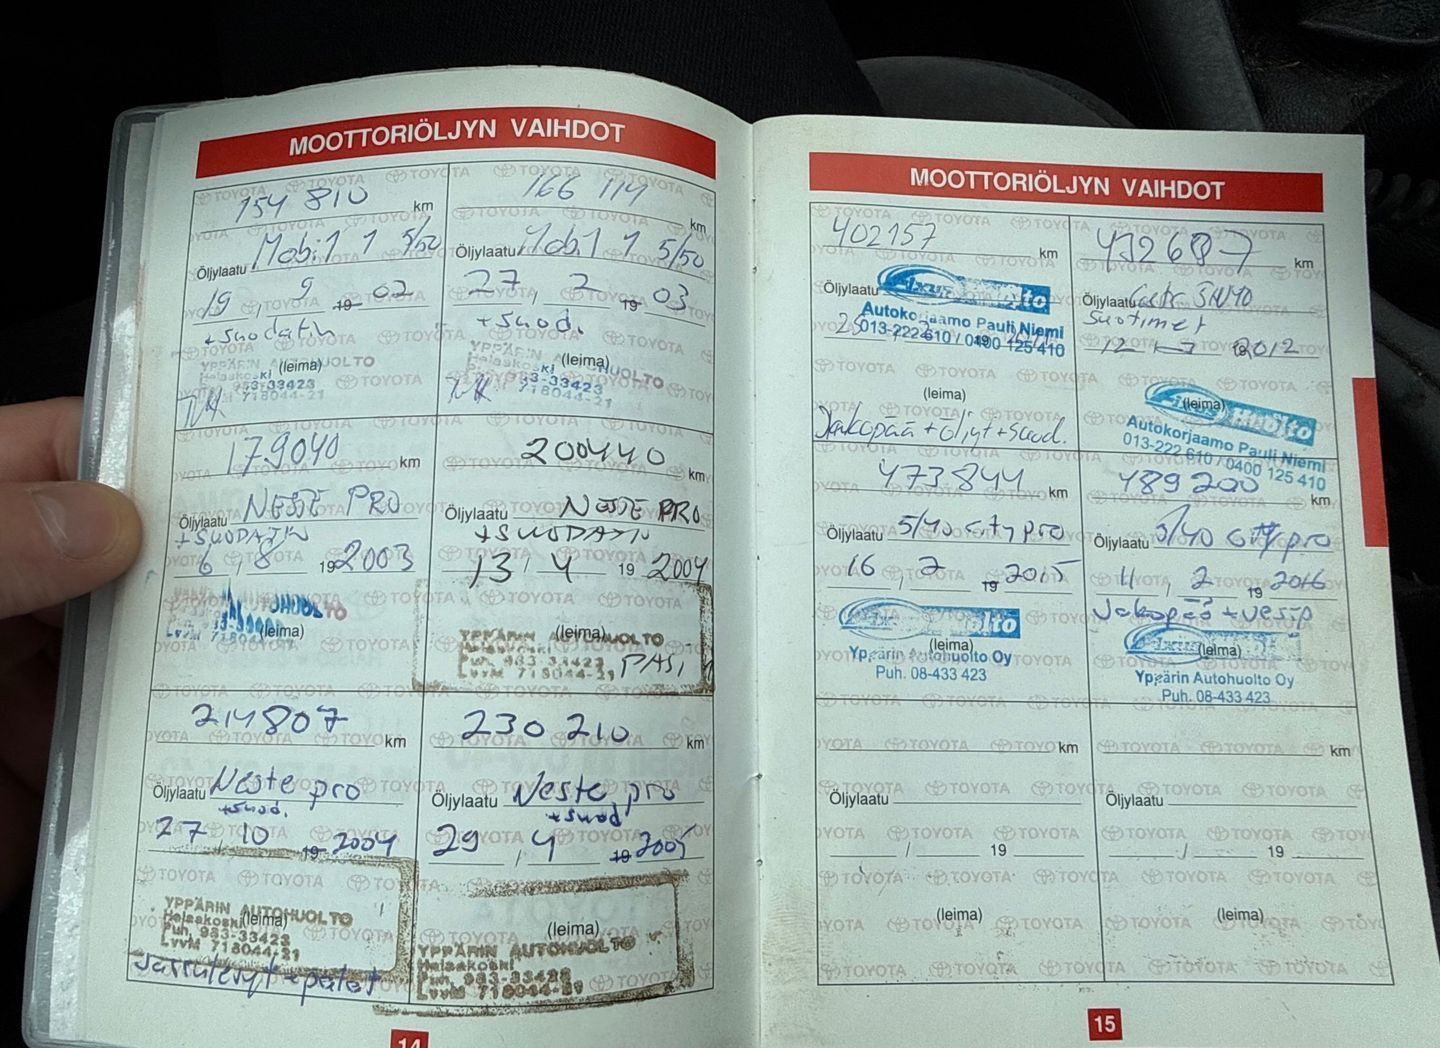 MOOTTORIÖLJYN VAIHDOT
154 810 km
Öljylaatu Mobil 1 5/50
19 9 19 02
+ suodatin
YPPÄRIN AUTOHUOLTO
(leima)
Helaakoski
983-33423
718044-21
166 114 km
Öljylaatu Mobil 1 5/50
27 / 2 19 03
+ suod.
YPPÄRIN AUTOHUOLTO
(leima)
983-33423
718044-21
179040 km
Öljylaatu NESTE PRO
+ SUODATIN
6 / 8 19 2003
AUTOHUOLTO
(leima)
LvvM 718044
200440 km
Öljylaatu NESTE PRO
+ SUODATIN
13 / 4 19 2004
YPPÄRIN AUTOHUOLTO
(leima)
Helaakoski
Puh. 983-33423
LvvM 718044-21
PASI
214807 km
Öljylaatu Neste pro
+ suod.
27 / 10 19 2004
YPPÄRIN AUTOHUOLTO
Helaakoski (leima)
Puh. 983-33423
LvvM 718044-21
Jarrulevyt + palat
230 210 km
Öljylaatu Neste pro
+ suod
29 / 4 19 2005
(leima)
YPPÄRIN AUTOHUOLTO
Helaakoski
Puh. 983-33423
LvvM 718044-21
14
MOOTTORIÖLJYN VAIHDOT
402157 km
Öljylaatu
Autokorjaamo Pauli Niemi
013-222 610 / 0400 125 410
25 19
(leima)
Jakopää + öljyt + suod.
432687 km
Öljylaatu 5W40
suotimet
12 19 2012
(leima)
Huolto
Autokorjaamo Pauli Niemi
013-222 610 / 0400 125 410
473844 km
Öljylaatu 5/40 city pro
16 / 2 19 2015
(leima)
Yppärin Autohuolto Oy
Puh. 08-433 423
489200 km
Öljylaatu 5/40 city pro
11 / 2 19 2016
Jakopää + vesip
(leima)
Yppärin Autohuolto Oy
Puh. 08-433 423
km
Öljylaatu
/ 19
(leima)
km
Öljylaatu
/ 19
(leima)
15